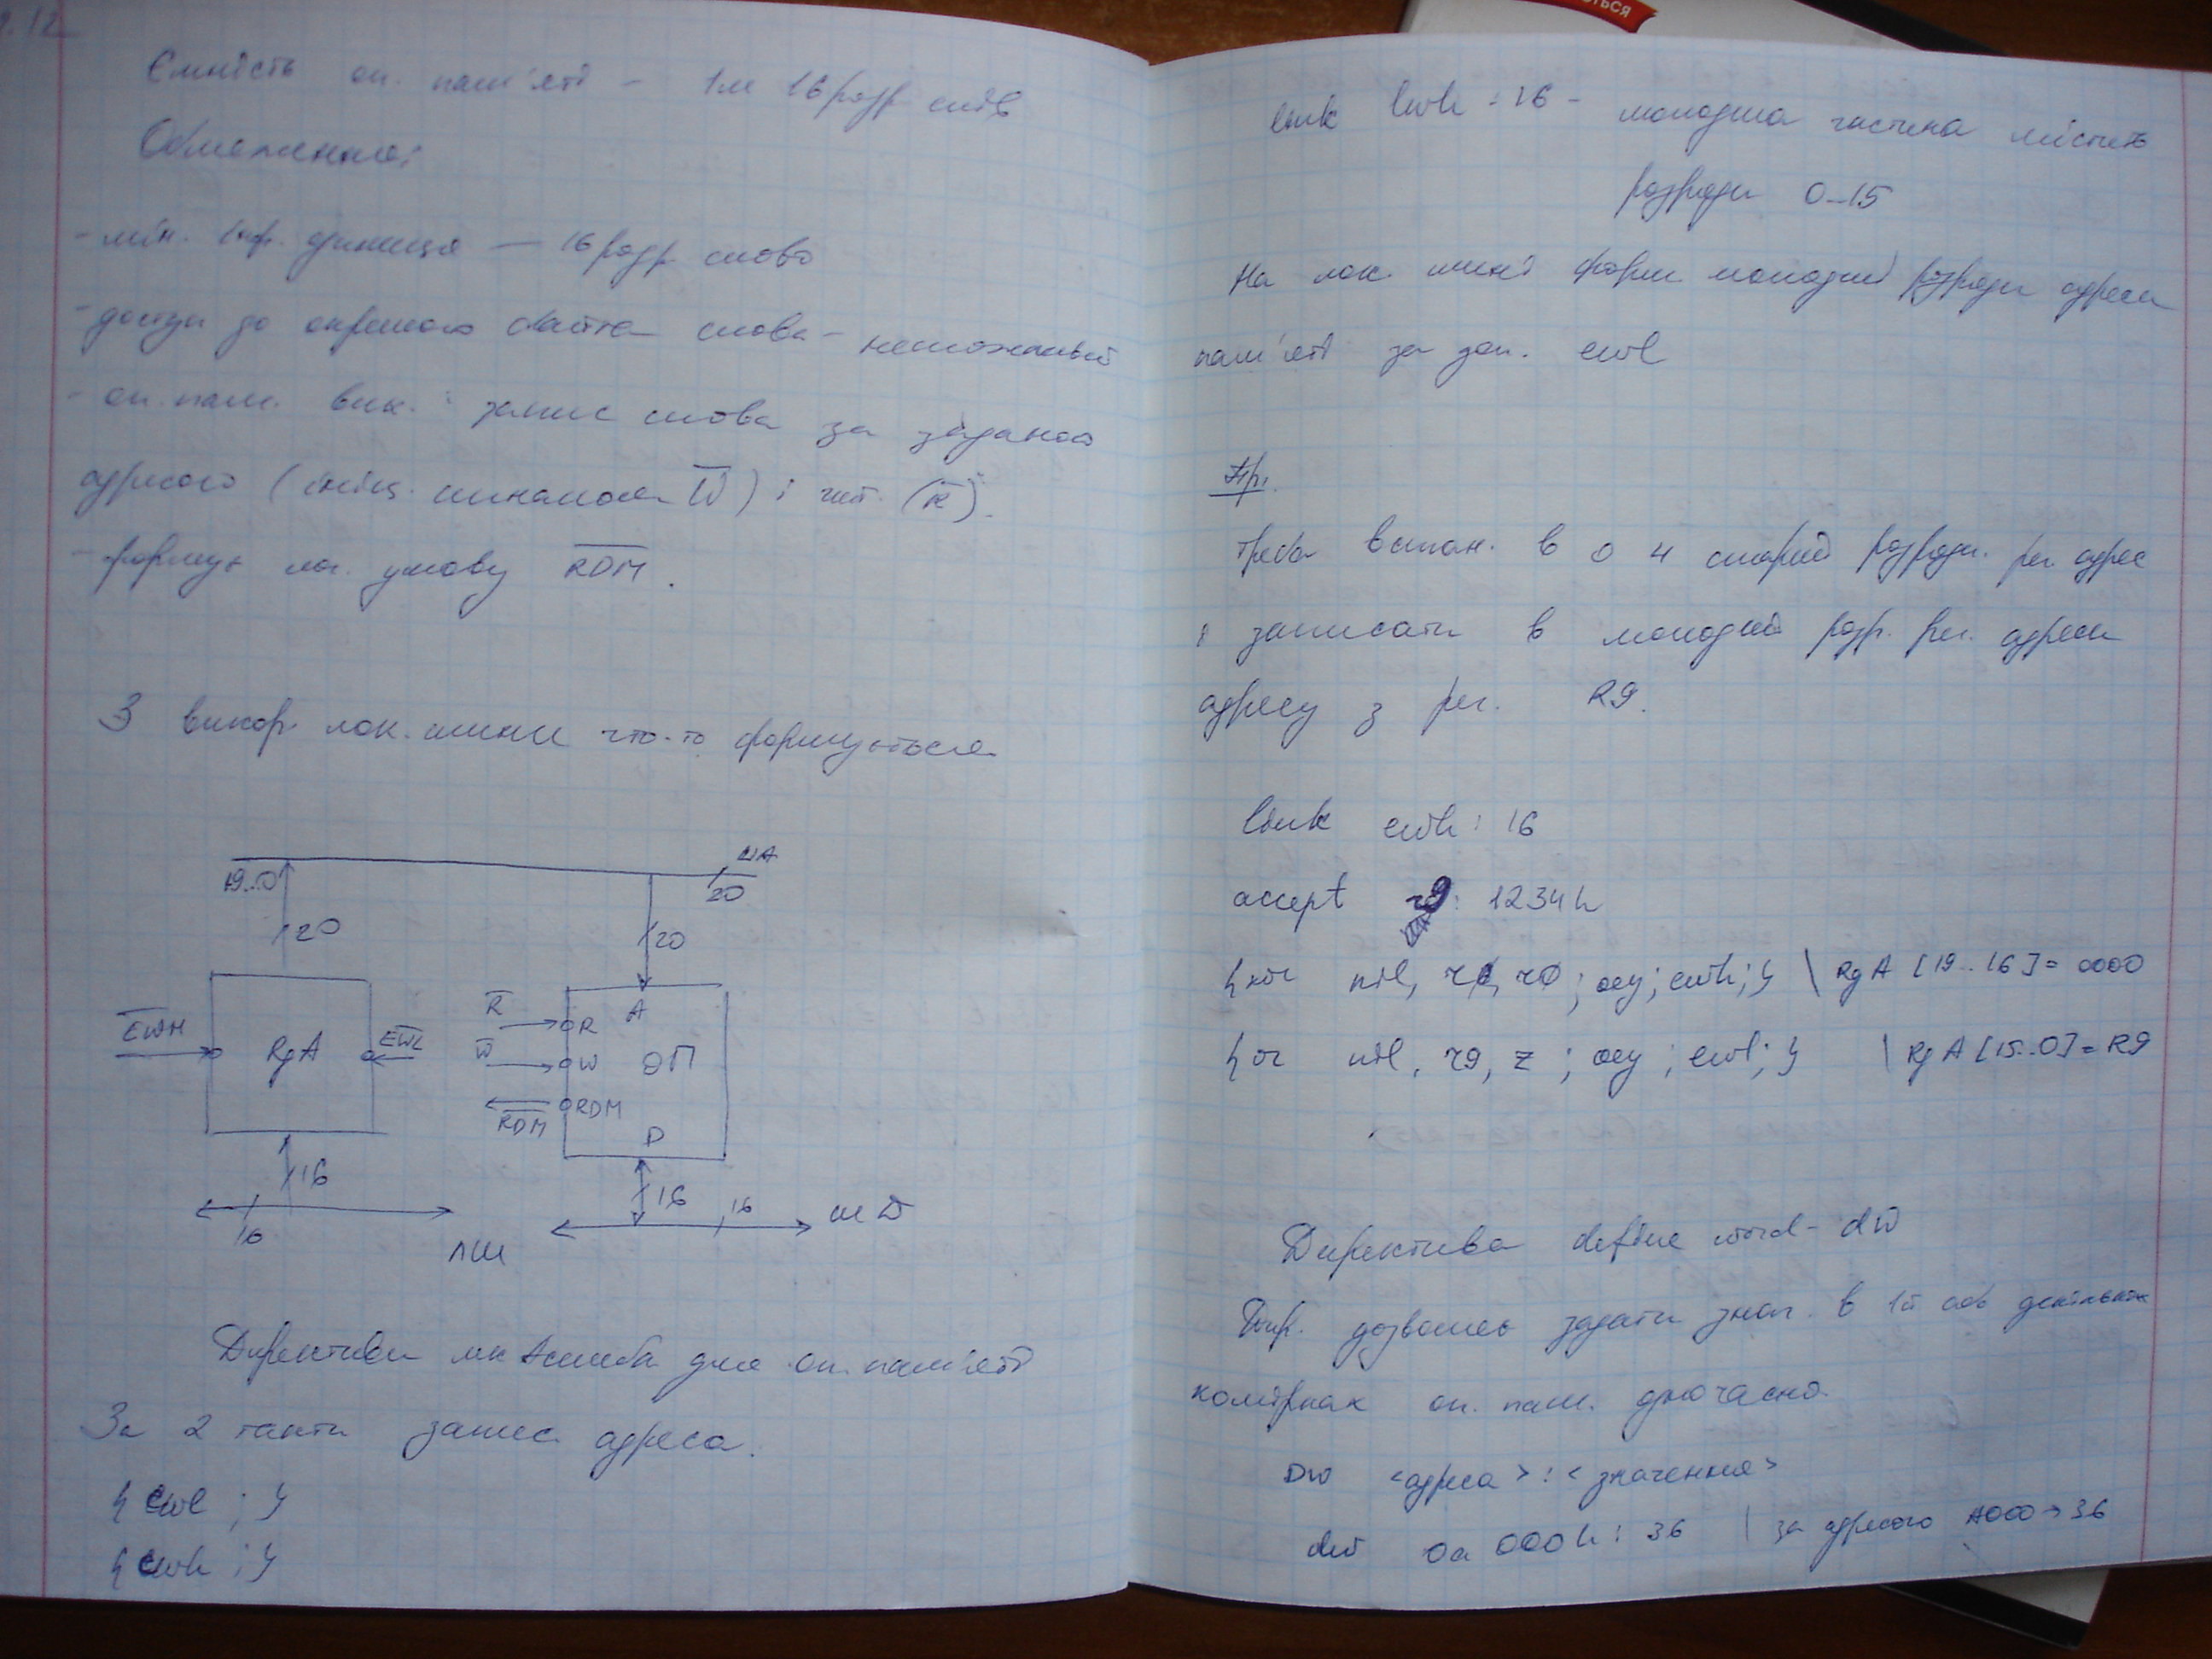 9.12
Ємність оп. пам'яті - 1м 16 розр слів
Обмеження:
- мін. інф. одиниця — 16 розр слово
- доступ до окремого байта слова - неможливий
- оп. пам. вик. запис слова за заданою
адресою (ініц. сигналом W̅) і чит. (R̅).
- формує лог. умову R̅D̅M̅.
З викор лок. шини что-то формується
19..0
20
20
ША
20
E̅W̅H̅
RgA
E̅W̅L̅
R̅
W̅
R̅D̅M̅
R
A
W
ОП
RDM
D
16
16
ЛШ
16
16
ш D
Директиви мк Асемба для оп. пам'яті
За 2 такти запис адреса.
{ ewl ; }
{ ewh ; }
link ewh : 16 - молодша частина містить
розряди 0-15
На лок. шині форм. молодші розряди адреси
пам'яті за доп. ewl
Пр.
Треба встан. в 0 4 старші розряди. рег. адрес
і записати в молодші розр. рег. адреси
адресу з рег. R9.
link ewh : 16
accept r9 : 1234h
{xor nil, r0, r0 ; oey ; ewh ; } \ RgA [19..16] = 0000
{or nil, r9, z ; oey ; ewl ; } \ RgA [15..0] = R9
Директива define word - dw
Дир. дозволяє задати знач. в 1й або декількох
комірках оп. пам. одночасно.
DW <адреса> : <значення>
dw 0a 000h : 36 | за адресою A000 → 36
ТЬСЯ